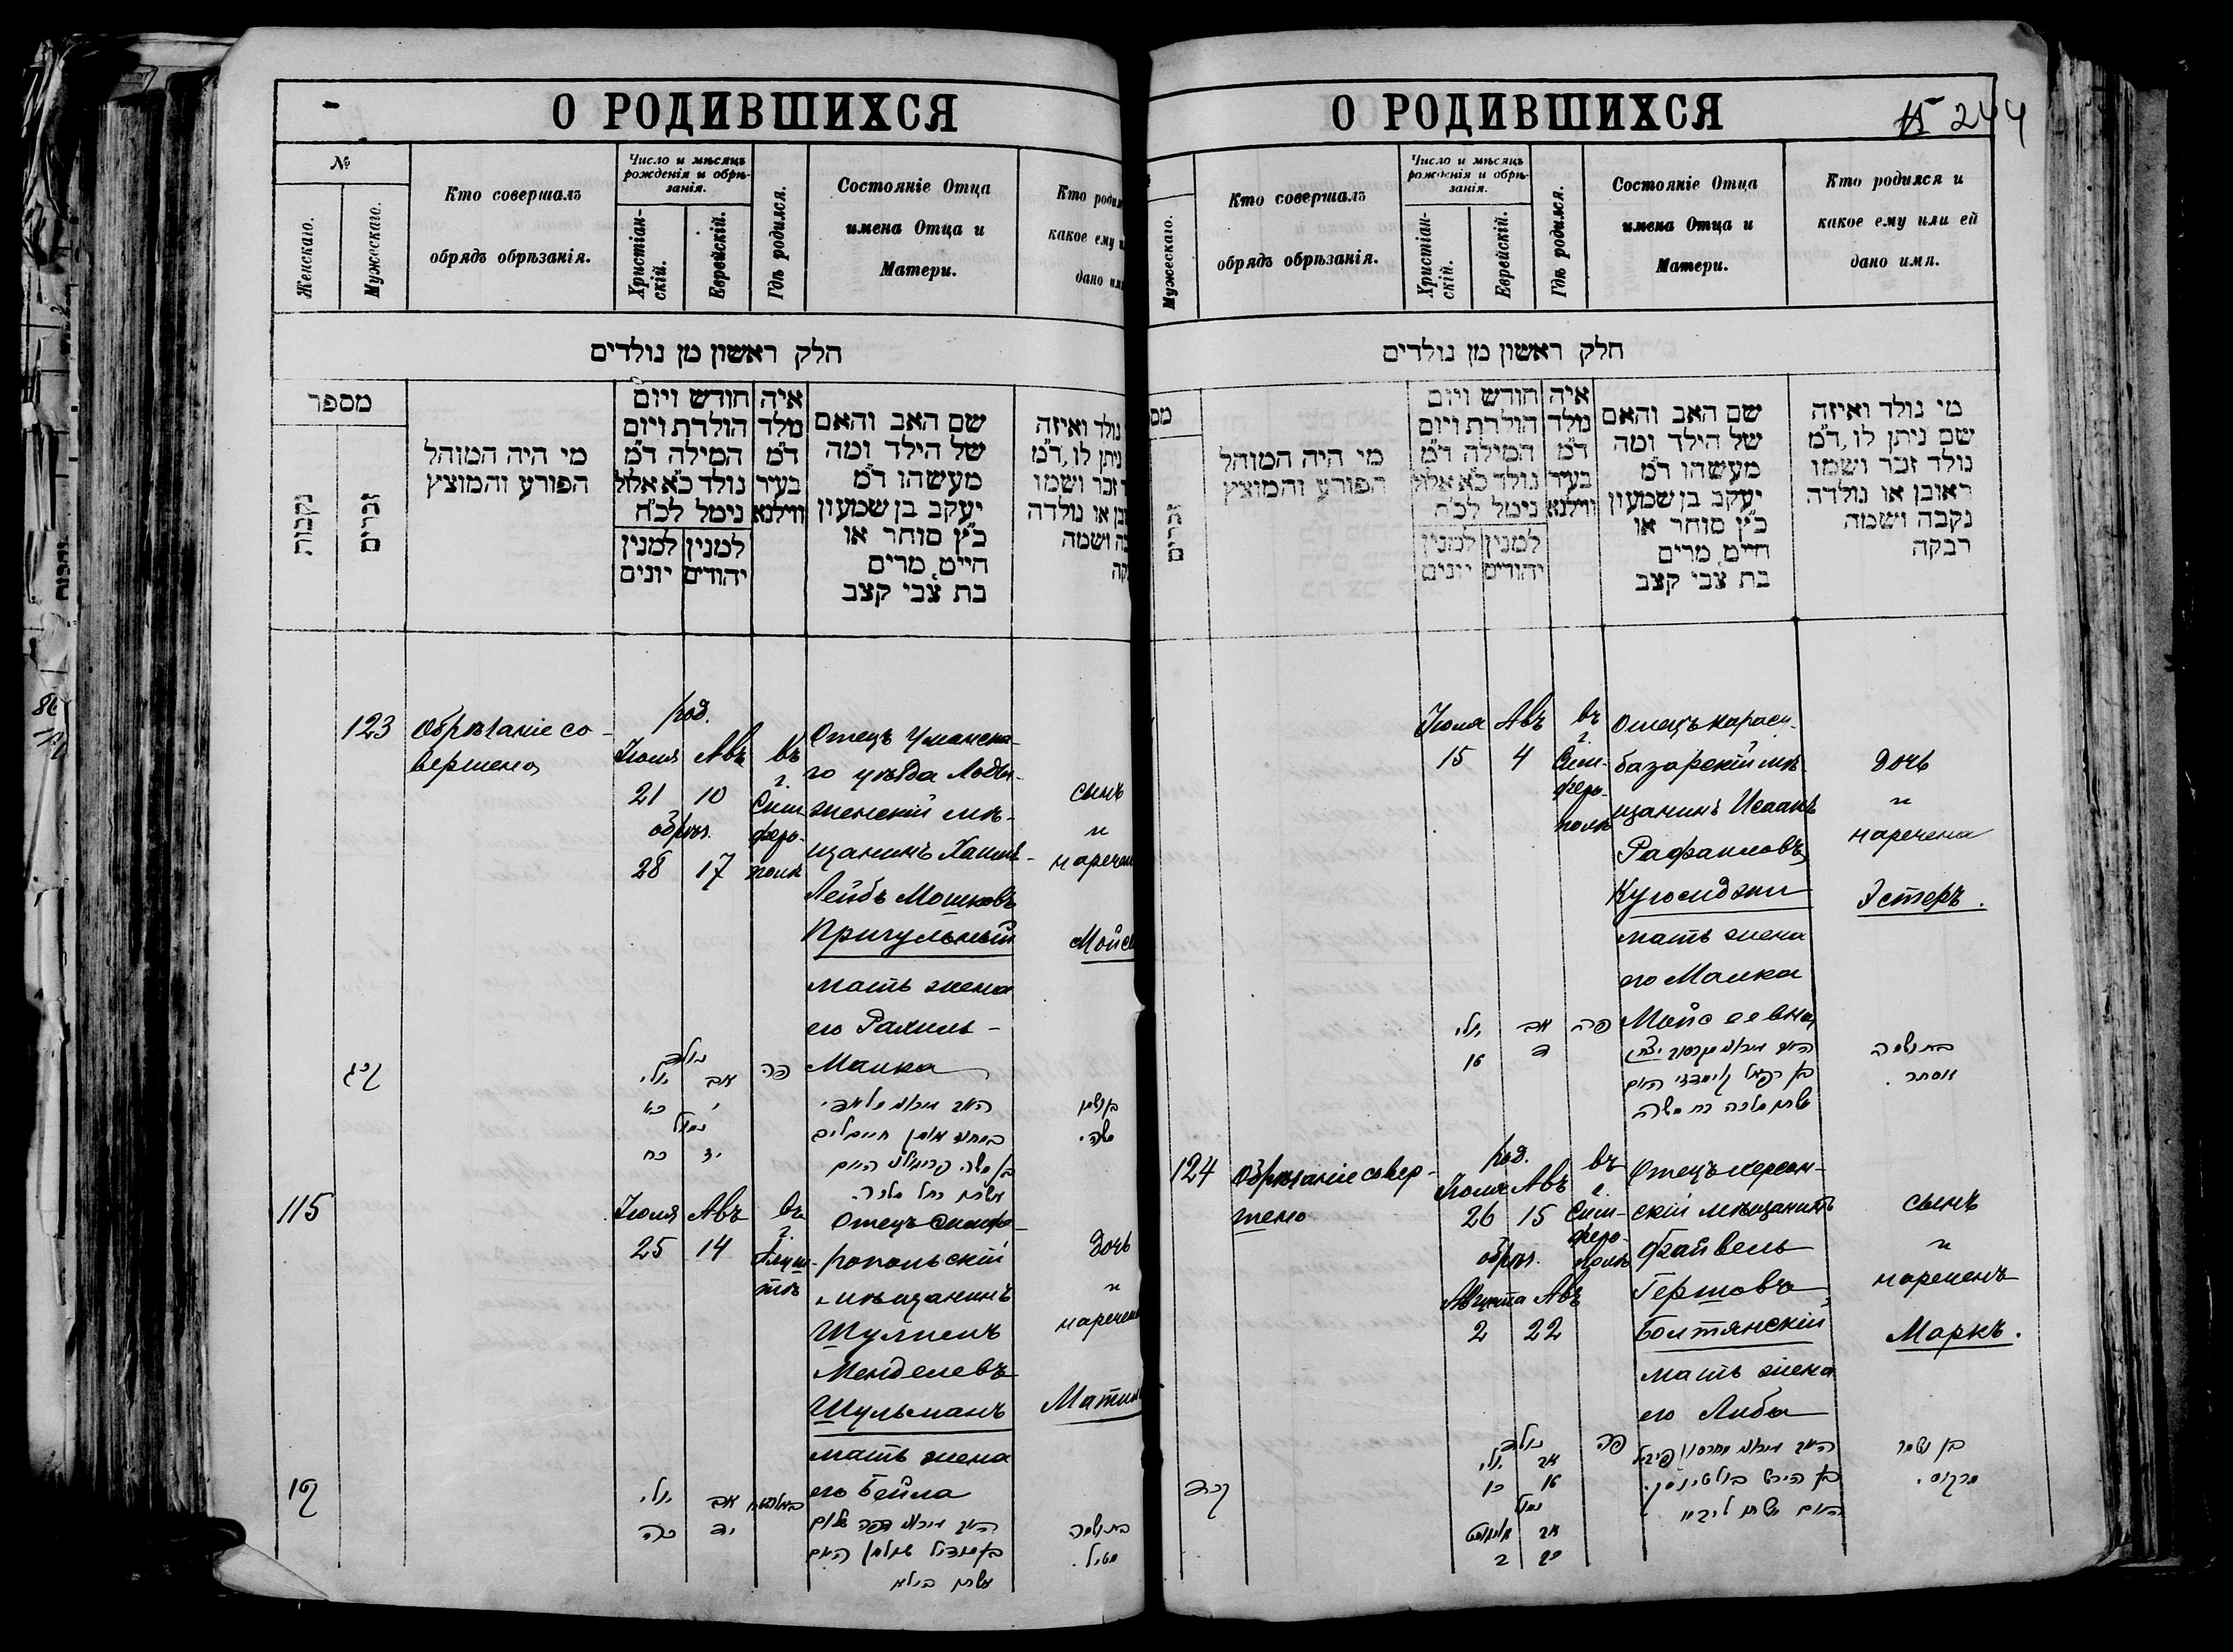 О РОДИВШИХСЯ
№
Женскаго.
Мужескаго.
Кто совершалъ
обрядъ обрѣзанія.
Число и мѣсяцъ
рожденія и обрѣ-
занія.
Христіан-
скій.
Еврейскій.
Гдѣ родился.
Состояніе Отца
имена Отца и
Матери.
Кто роди
какое ему и
дано им
חלק ראשון מן נולדים
מספר
נקבות
זכרים
מי היה המוהל
הפורע והמוצץ
חודש ויום
הולדת ויום
המילה ד"מ
נולד כ"א אלול
נימל לכ"ח
למנין יהודים
למנין יונים
איה
מלד
ד"מ
בעיר
ווילנא
שם האב והאם
של הילד ומה
מעשהו ד"מ
יעקב בן שמעון
כ"ץ סוחר או
חייט, מרים
בת צבי קצב
נולד ואיזה
ניתן לו, ד"מ
זכר ושמו
או נולדה
ושמה
123
Обрѣзаніе со-
вершено
род.
Іюля Авъ
21 10
обрѣз.
28 17
въ
г.
Сим
феро-
полѣ
Отецъ Уманска-
го уѣзда Ладыж
женскій мѣ-
щанинъ Хаимъ-
Лейбъ Мошковъ
Пригульный
мать жена
его Рахиль-
Малка
сынъ
и
наречен
Мойсе
קכג
נולד
יולי אב
כא י
נמול
כח יז
פה
בן ושמו
משה.
115
Іюля Авъ
25 14
въ
г.
Алуш-
тѣ
Отецъ Симфе-
ропольскій
мѣщанинъ
Шулимъ
Менделевъ
Шульманъ
мать жена
его Бейла
дочь
и
наречена
Матил
קטו
יולי אב
כה יד
באלושטא
בן מנדיל שולמן האם
אשתו ביילא
בת ושמה
О РОДИВШИХСЯ
244
Мужескаго.
Кто совершалъ
обрядъ обрѣзанія.
Число и мѣсяцъ
рожденія и обрѣ-
занія.
Христіан-
скій.
Еврейскій.
Гдѣ родился.
Состояніе Отца
имена Отца и
Матери.
Кто родился и
какое ему или ей
дано имя.
חלק ראשון מן נולדים
מס
זכרים
מי היה המוהל
הפורע והמוצץ
חודש ויום
הולדת ויום
המילה ד"מ
נולד כ"א אלול
נימל לכ"ח
למנין יהודים
למנין יונים
איה
מלד
ד"מ
בעיר
ווילנא
שם האב והאם
של הילד ומה
מעשהו ד"מ
יעקב בן שמעון
כ"ץ סוחר או
חייט, מרים
בת צבי קצב
מי נולד ואיזה
שם ניתן לו, ד"מ
נולד זכר ושמו
ראובן או נולדה
נקבה ושמה
רבקה
Іюля Авъ
15 4
въ
г.
Сим-
феро-
полѣ
Отецъ карасу-
базарскій мѣ-
щанинъ Исаакъ
Рафаиловъ
мать жена
его Малка
Мойсеевна
дочь
и
наречена
Эстеръ.
יולי אב
טו ד
פה
אשתו מלכה בת משה
בת ושמה
אסתר.
124
Обрѣзаніе совер-
шено
род.
Іюля Авъ
26 15
обрѣз.
Августа Авъ
2 22
въ
г.
Сим-
феро-
полѣ
Отецъ херсон-
скій мѣщанинъ
Файвель
Гершовъ
Болтянскій
мать жена
его Либа
сынъ
и
нареченъ
Маркъ.
קכד
נולד
יולי אב
כו טו
נמול
אויגוסט אב
ב כב
פה
בן הירש בולטיאנסקי.
האם אשתו ליבא
בן ושמו
מרקוס.